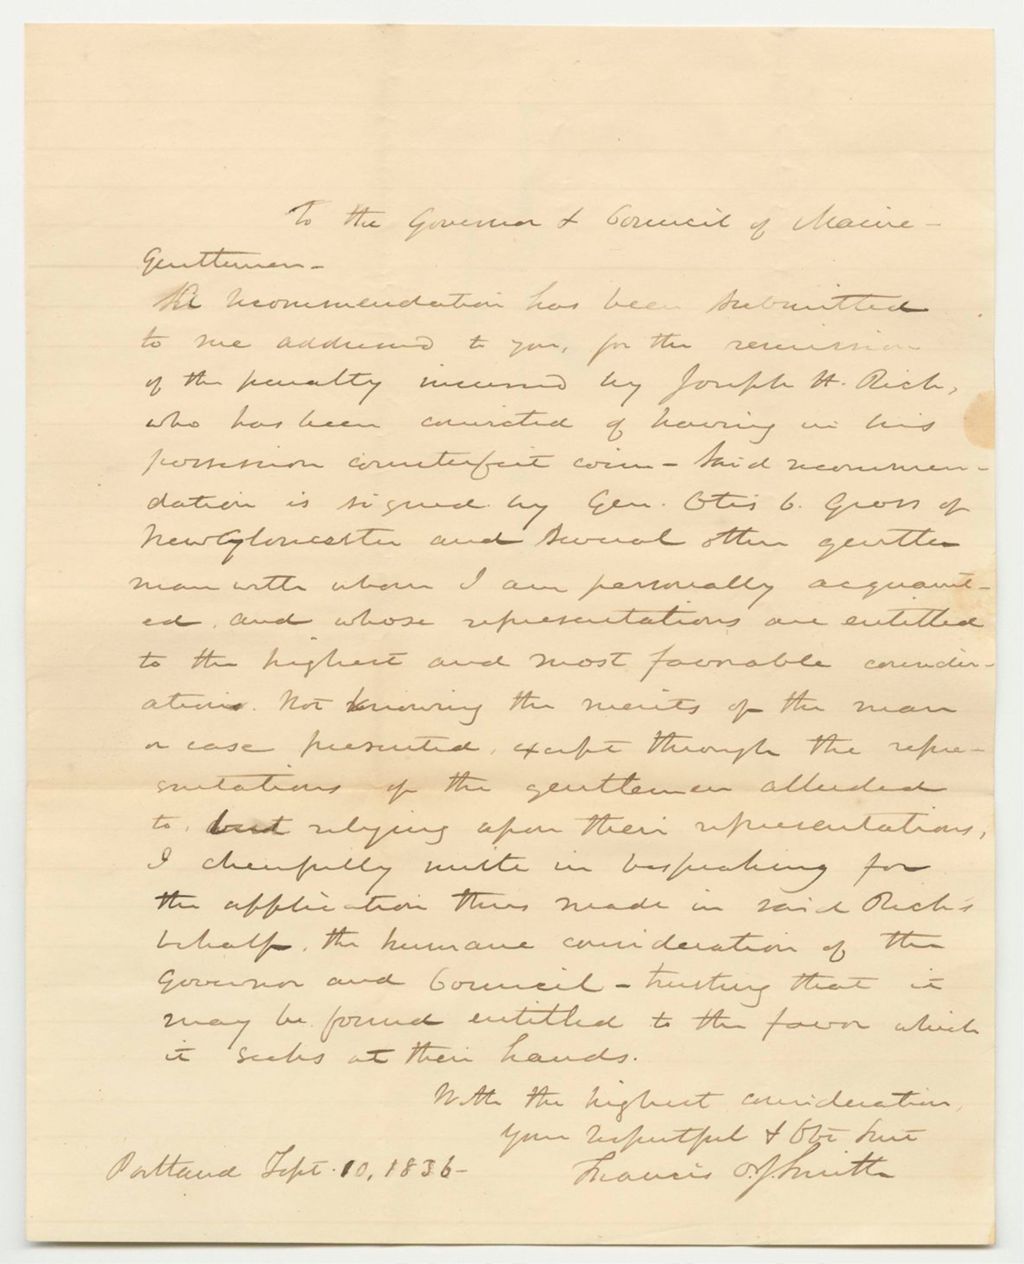 To the Governor & Council of Maine -
Gentlemen -
A recommendation has been submitted
to me addressed to you, for the remission
of the penalty incurred by Joseph H. Rich,
who has been convicted of having in his
possession counterfeit coin - Said recommen-
dation is signed by Gen. Otis C. Gross of
New Gloucester and several other gentle
man with whom I am personally acquaint-
ed, and whose representations are entitled
to the highest and most favorable consider-
ation. Not knowing the merits of the man
or case presented, except through the repre-
sentations of the gentlemen alluded
to, but relying upon their representations,
I cheerfully unite in bespeaking for
the application thus made in said Rich's
behalf, the humane consideration of the
Governor and Council - trusting that it
may be found entitled to the favor which
it seeks at their hands.
With the highest consideration,
Your respectful & Obt Servt
Francis O. J. Smith
Portland Sept. 10, 1836 -